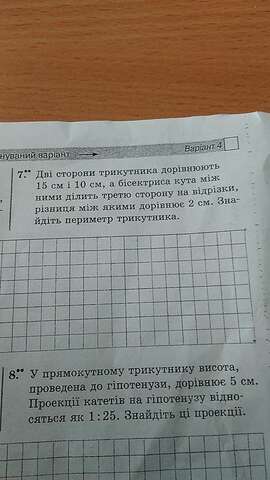 нуваний варіант Варіант 4
7.•• Дві сторони трикутника дорівнюють
15 см і 10 см, а бісектриса кута між
ними ділить третю сторону на відрізки,
різниця між якими дорівнює 2 см. Зна-
йдіть периметр трикутника.
8.•• У прямокутному трикутнику висота,
проведена до гіпотенузи, дорівнює 5 см.
Проекції катетів на гіпотенузу відно-
сяться як 1:25. Знайдіть ці проекції.